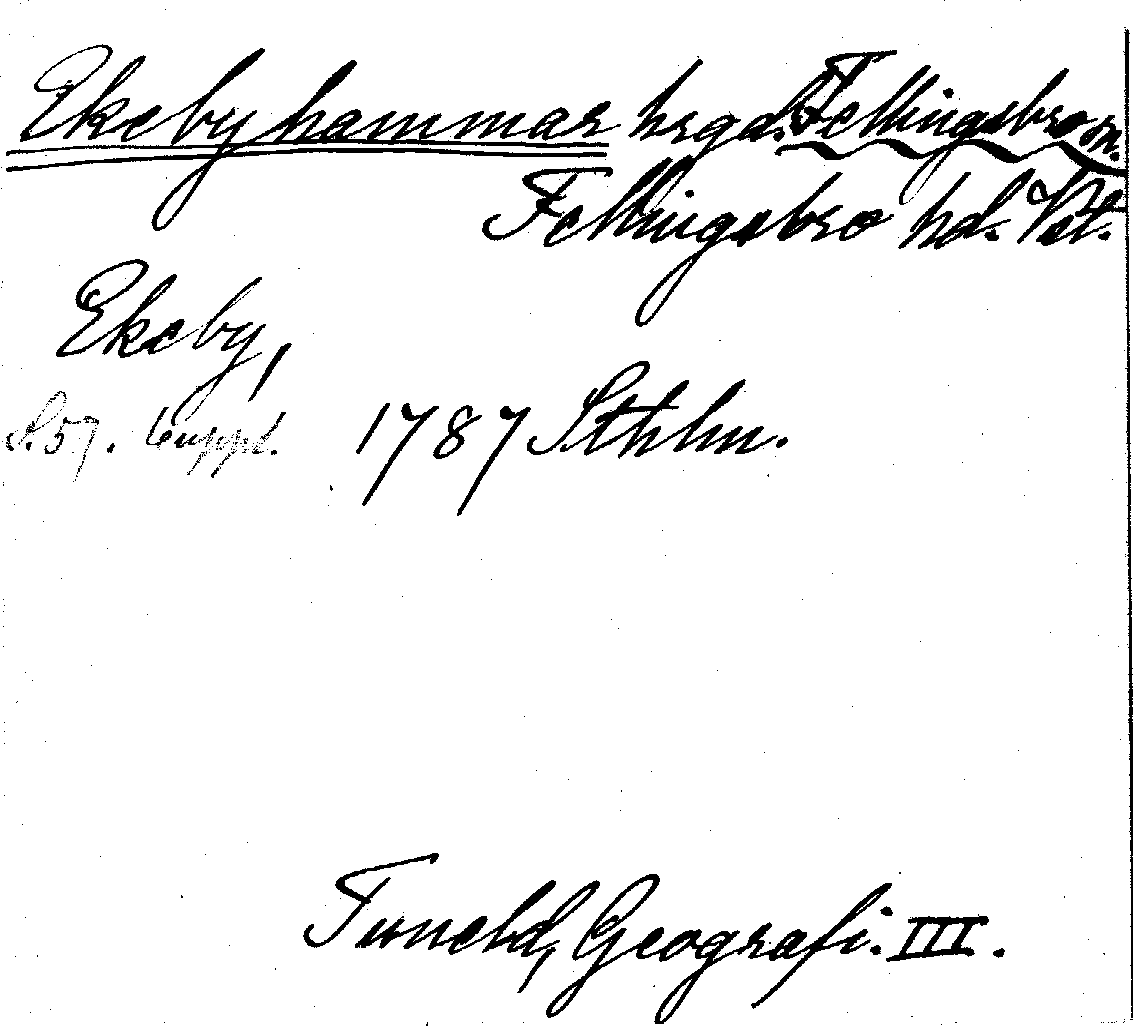 Ekebyhammar hrgd. Fellingsbro sn.
Fellingsbro hd. Vst.
Ekeby,
S. 57. 1787 Sthlm.
Tuneld, Geografi. III.